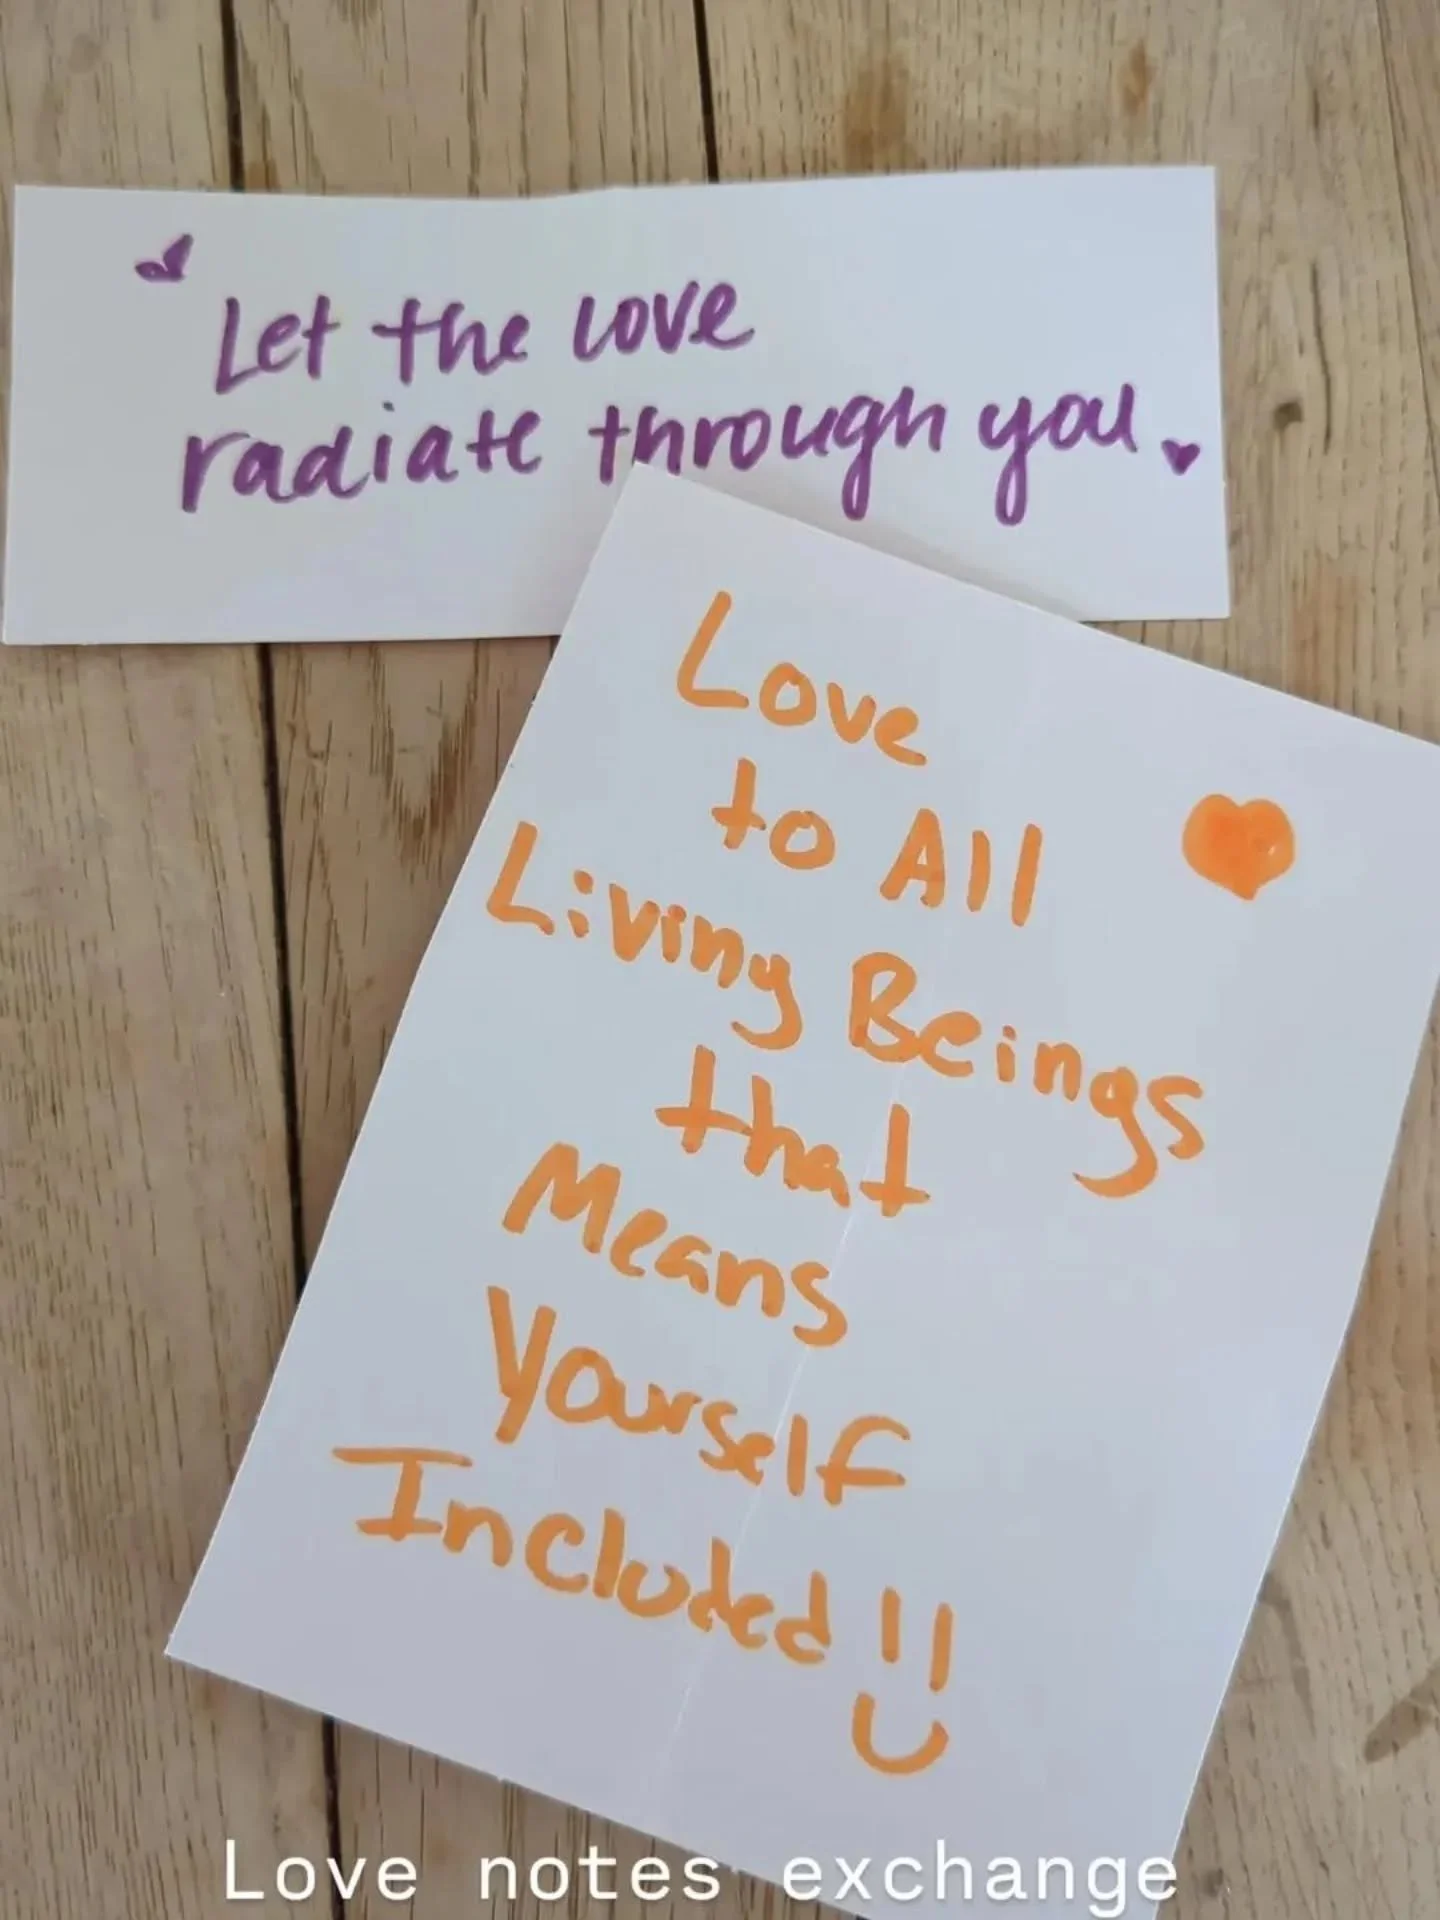 Let the love
radiate through you.
Love
to All
Living Beings
that
Means
Yourself
Included!!
Love notes exchange